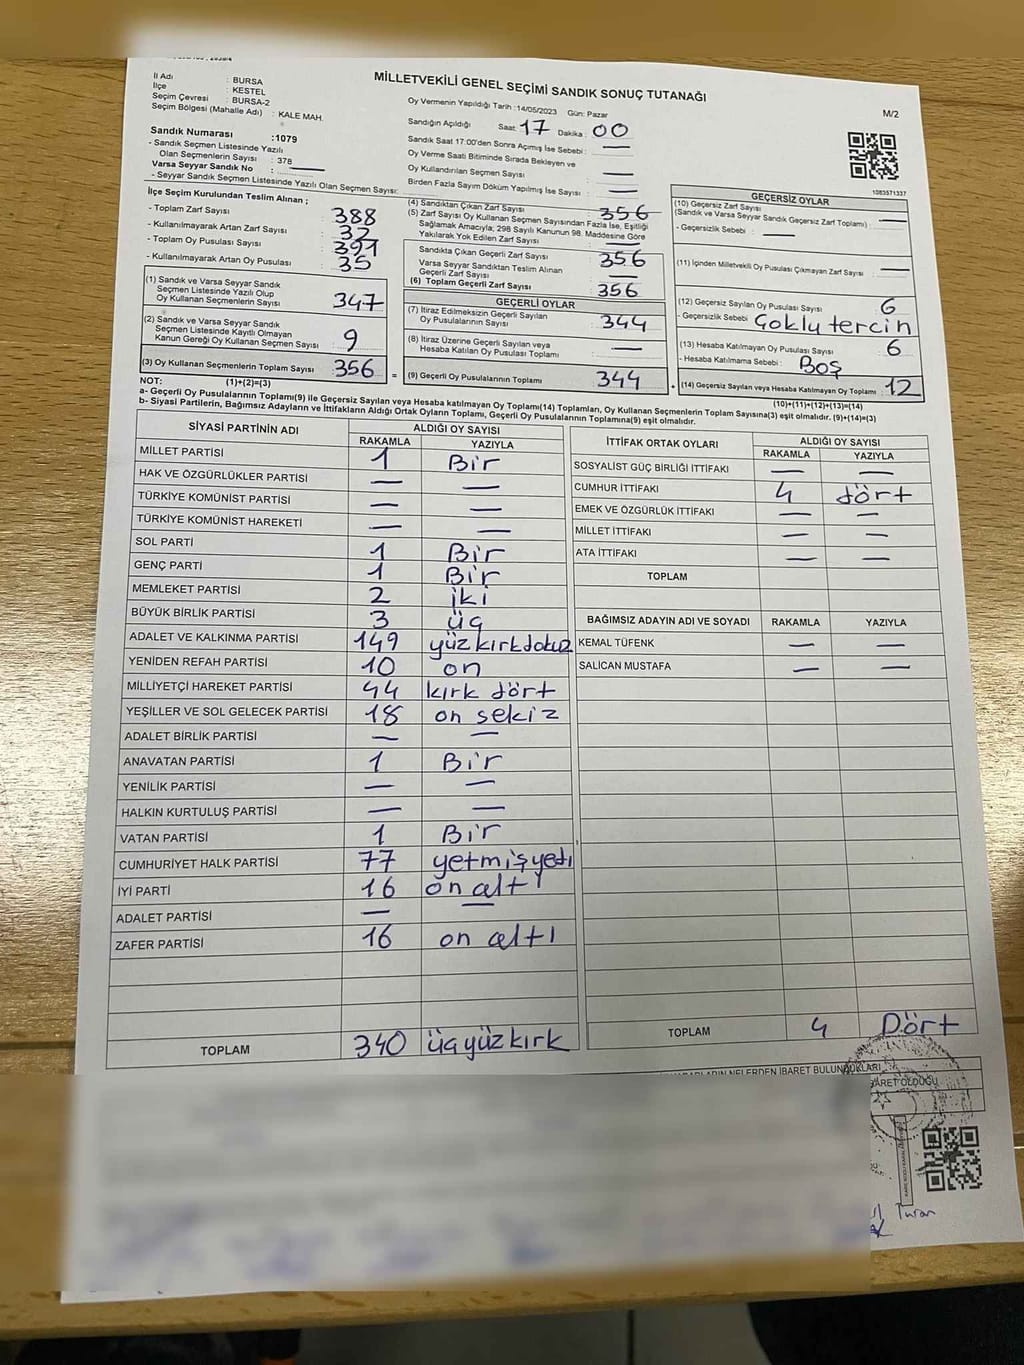 MİLLETVEKİLİ GENEL SEÇİMİ SANDIK SONUÇ TUTANAĞI
M/2
İl Adı : BURSA
İlçe : KESTEL
Seçim Çevresi : BURSA-2
Seçim Bölgesi (Mahalle Adı) : KALE MAH.
Sandık Numarası : 1079
- Sandık Seçmen Listesinde Yazılı
Olan Seçmenlerin Sayısı : 378
Varsa Seyyar Sandık No :
- Seyyar Sandık Seçmen Listesinde Yazılı Olan Seçmen Sayısı:
Oy Vermenin Yapıldığı Tarih : 14/05/2023 Gün: Pazar
Sandığın Açıldığı Saat: 17 Dakika : 00
Sandık Saat 17:00'den Sonra Açmış İse Sebebi : —
Oy Verme Saati Bitiminde Sırada Bekleyen ve
Oy Kullandırılan Seçmen Sayısı : —
Birden Fazla Sayım Döküm Yapılmış İse Sayısı : —
1083571337
İlçe Seçim Kurulundan Teslim Alınan ;
- Toplam Zarf Sayısı : 388
- Kullanılmayarak Artan Zarf Sayısı : 32
- Toplam Oy Pusulası Sayısı : 391
- Kullanılmayarak Artan Oy Pusulası : 35
(1) Sandık ve Varsa Seyyar Sandık
Seçmen Listesinde Yazılı Olup
Oy Kullanan Seçmenlerin Sayısı : 347
(2) Sandık ve Varsa Seyyar Sandık
Seçmen Listesinde Kayıtlı Olmayan
Kanun Gereği Oy Kullanan Seçmen Sayısı : 9
(3) Oy Kullanan Seçmenlerin Toplam Sayısı : 356
(4) Sandıktan Çıkan Zarf Sayısı : 356
(5) Zarf Sayısı Oy Kullanan Seçmen Sayısından Fazla İse, Eşitliği
Sağlamak Amacıyla; 298 Sayılı Kanunun 98. Maddesine Göre
Yakılarak Yok Edilen Zarf Sayısı : —
Sandıkta Çıkan Geçerli Zarf Sayısı : 356
Varsa Seyyar Sandıktan Teslim Alınan
Geçerli Zarf Sayısı : —
(6) Toplam Geçerli Zarf Sayısı : 356
GEÇERLİ OYLAR
(7) İtiraz Edilmeksizin Geçerli Sayılan
Oy Pusulalarının Sayısı : 344
(8) İtiraz Üzerine Geçerli Sayılan veya
Hesaba Katılan Oy Pusulası Toplamı : —
= (9) Geçerli Oy Pusulalarının Toplamı : 344
GEÇERSİZ OYLAR
(10) Geçersiz Zarf Sayısı
(Sandık ve Varsa Seyyar Sandık Geçersiz Zarf Toplamı) : —
- Geçersizlik Sebebi : —
(11) İçinden Milletvekili Oy Pusulası Çıkmayan Zarf Sayısı : —
(12) Geçersiz Sayılan Oy Pusulası Sayısı : 6
- Geçersizlik Sebebi : Çoklu tercih
(13) Hesaba Katılmayan Oy Pusulası Sayısı : 6
- Hesaba Katılmama Sebebi : Boş
+ (14) Geçersiz Sayılan veya Hesaba Katılmayan Oy Toplamı : 12
NOT: (1)+(2)=(3) (10)+(11)+(12)+(13)=(14)
a- Geçerli Oy Pusulalarının Toplamı(9) ile Geçersiz Sayılan veya Hesaba Katılmayan Oy Toplamı(14) Toplamları, Oy Kullanan Seçmenlerin Toplam Sayısına(3) eşit olmalıdır. (9)+(14)=(3)
b- Siyasi Partilerin, Bağımsız Adayların ve İttifakların Aldığı Ortak Oyların Toplamı, Geçerli Oy Pusulalarının Toplamına(9) eşit olmalıdır.
SİYASİ PARTİNİN ADI ALDIĞI OY SAYISI
RAKAMLA YAZIYLA
MİLLET PARTİSİ 1 Bir
HAK VE ÖZGÜRLÜKLER PARTİSİ — —
TÜRKİYE KOMÜNİST PARTİSİ — —
TÜRKİYE KOMÜNİST HAREKETİ — —
SOL PARTİ 1 Bir
GENÇ PARTİ 1 Bir
MEMLEKET PARTİSİ 2 iki
BÜYÜK BİRLİK PARTİSİ 3 üç
ADALET VE KALKINMA PARTİSİ 149 yüzkırkdokuz
YENİDEN REFAH PARTİSİ 10 on
MİLLİYETÇİ HAREKET PARTİSİ 44 kırk dört
YEŞİLLER VE SOL GELECEK PARTİSİ 18 on sekiz
ADALET BİRLİK PARTİSİ — —
ANAVATAN PARTİSİ 1 Bir
YENİLİK PARTİSİ — —
HALKIN KURTULUŞ PARTİSİ — —
VATAN PARTİSİ 1 Bir
CUMHURİYET HALK PARTİSİ 77 yetmişyedi
İYİ PARTİ 16 on altı
ADALET PARTİSİ — —
ZAFER PARTİSİ 16 on altı
TOPLAM 340 üçyüzkırk
İTTİFAK ORTAK OYLARI ALDIĞI OY SAYISI
RAKAMLA YAZIYLA
SOSYALİST GÜÇ BİRLİĞİ İTTİFAKI — —
CUMHUR İTTİFAKI 4 dört
EMEK VE ÖZGÜRLÜK İTTİFAKI — —
MİLLET İTTİFAKI — —
ATA İTTİFAKI — —
TOPLAM
BAĞIMSIZ ADAYIN ADI VE SOYADI RAKAMLA YAZIYLA
KEMAL TÜFENK — —
SALİCAN MUSTAFA — —
TOPLAM 4 Dört
NELERDEN İBARET BULUNDUKLARI
Turan